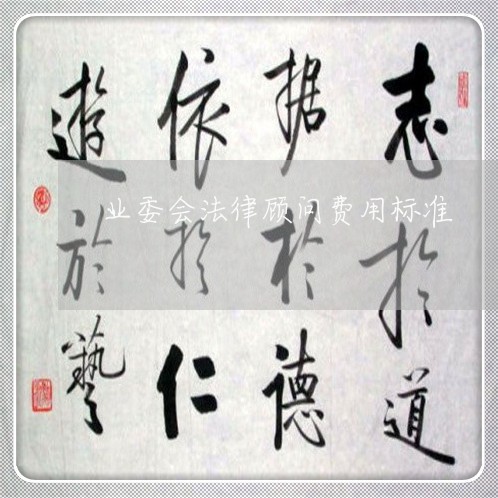 志於道
据於德
依於仁
遊於藝
业委会法律顾问费用标准